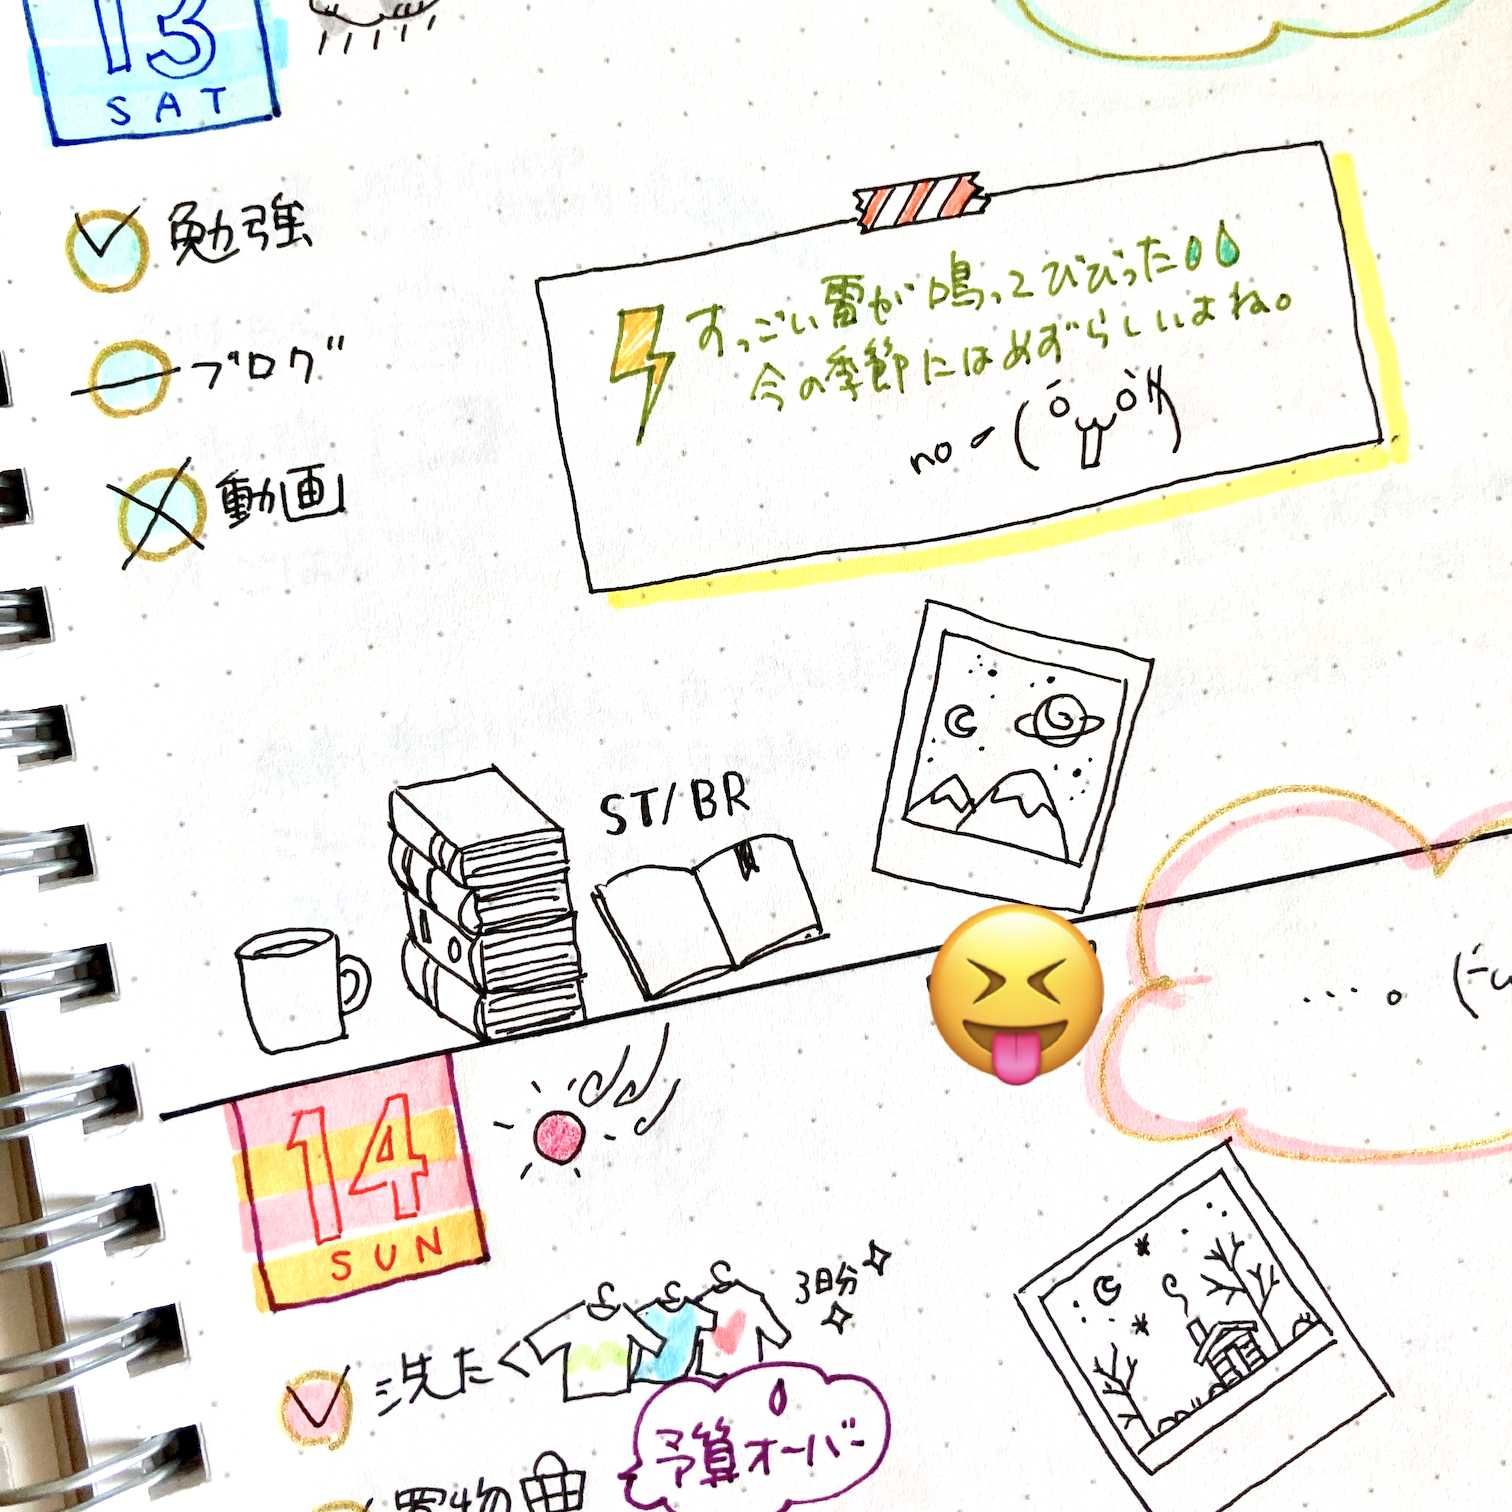 13
SAT
勉強
ブログ
動画
すっごい雷が鳴ってびびった
今の季節にはめずらしいよね。
no
ST/BR
14
SUN
洗たく
3日分
予算オーバー
買物